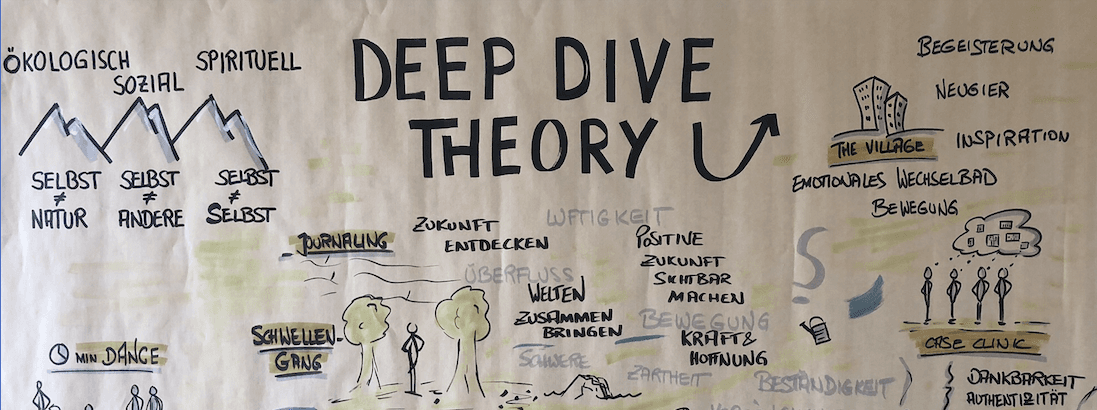 DEEP DIVE
THEORY
ÖKOLOGISCH
SOZIAL
SPIRITUELL
SELBST
≠
NATUR
SELBST
≠
ANDERE
SELBST
≠
SELBST
JOURNALING
ZUKUNFT
ENTDECKEN
LUFTIGKEIT
ÜBERFLUSS
WELTEN
ZUSAMMEN
BRINGEN
SCHWERE
POSITIVE
ZUKUNFT
SICHTBAR
MACHEN
BEWEGUNG
KRAFT &
HOFFNUNG
ZARTHEIT
BESTÄNDIGKEIT
SCHWELLEN-
GANG
MIN DANCE
BEGEISTERUNG
NEUGIER
INSPIRATION
THE VILLAGE
EMOTIONALES WECHSELBAD
BEWEGUNG
CASE CLINIC
DANKBARKEIT
AUTHENTIZITÄT